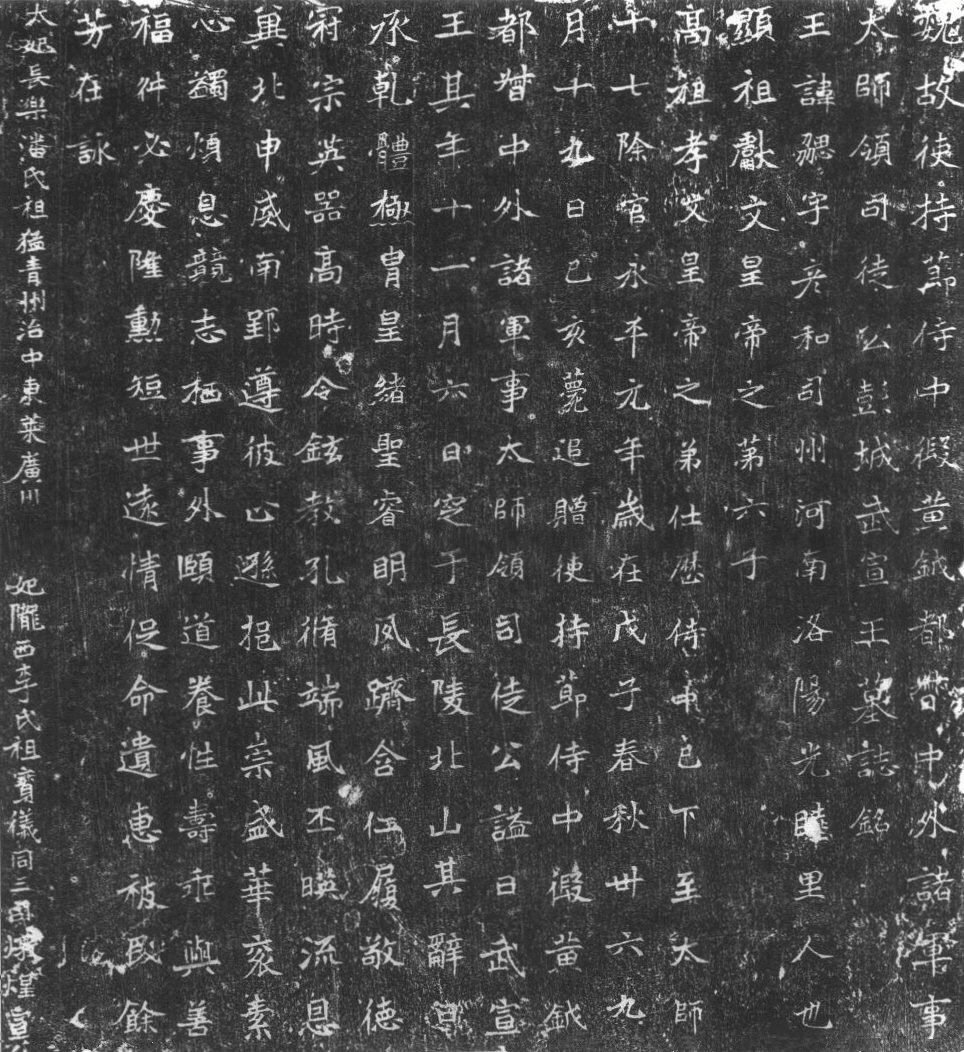 魏故使持節侍中假黃鉞都督中外諸軍事
太師領司徒公彭城武宣王墓誌銘
王諱勰字彥和司州河南洛陽光睦里人也
顯祖獻文皇帝之第六子
高祖孝文皇帝之弟仕歷侍中已下至太師
十七除官永平元年歲在戊子春秋卅六九
月十九日己亥薨追贈使持節侍中假黃鉞
都督中外諸軍事太師領司徒公謚曰武宣
王其年十一月六日窆于長陵北山其辭曰
承乾體極胄皇緒聖睿明夙躋含仁履敬德
冠宗英器高時令鉉教孔脩端風丕暎流恩
冀北申威南郢遵彼止遜挹此崇盛華袞素
心蠲煩息競志栖事外頤道養性壽乖與善
福舛必慶隆勳短世遠情促命遺惠被民餘
芳在詠
太妃長樂潘氏祖猛青州治中東萊廣川
妃隴西李氏祖寶儀同三司燉煌宣